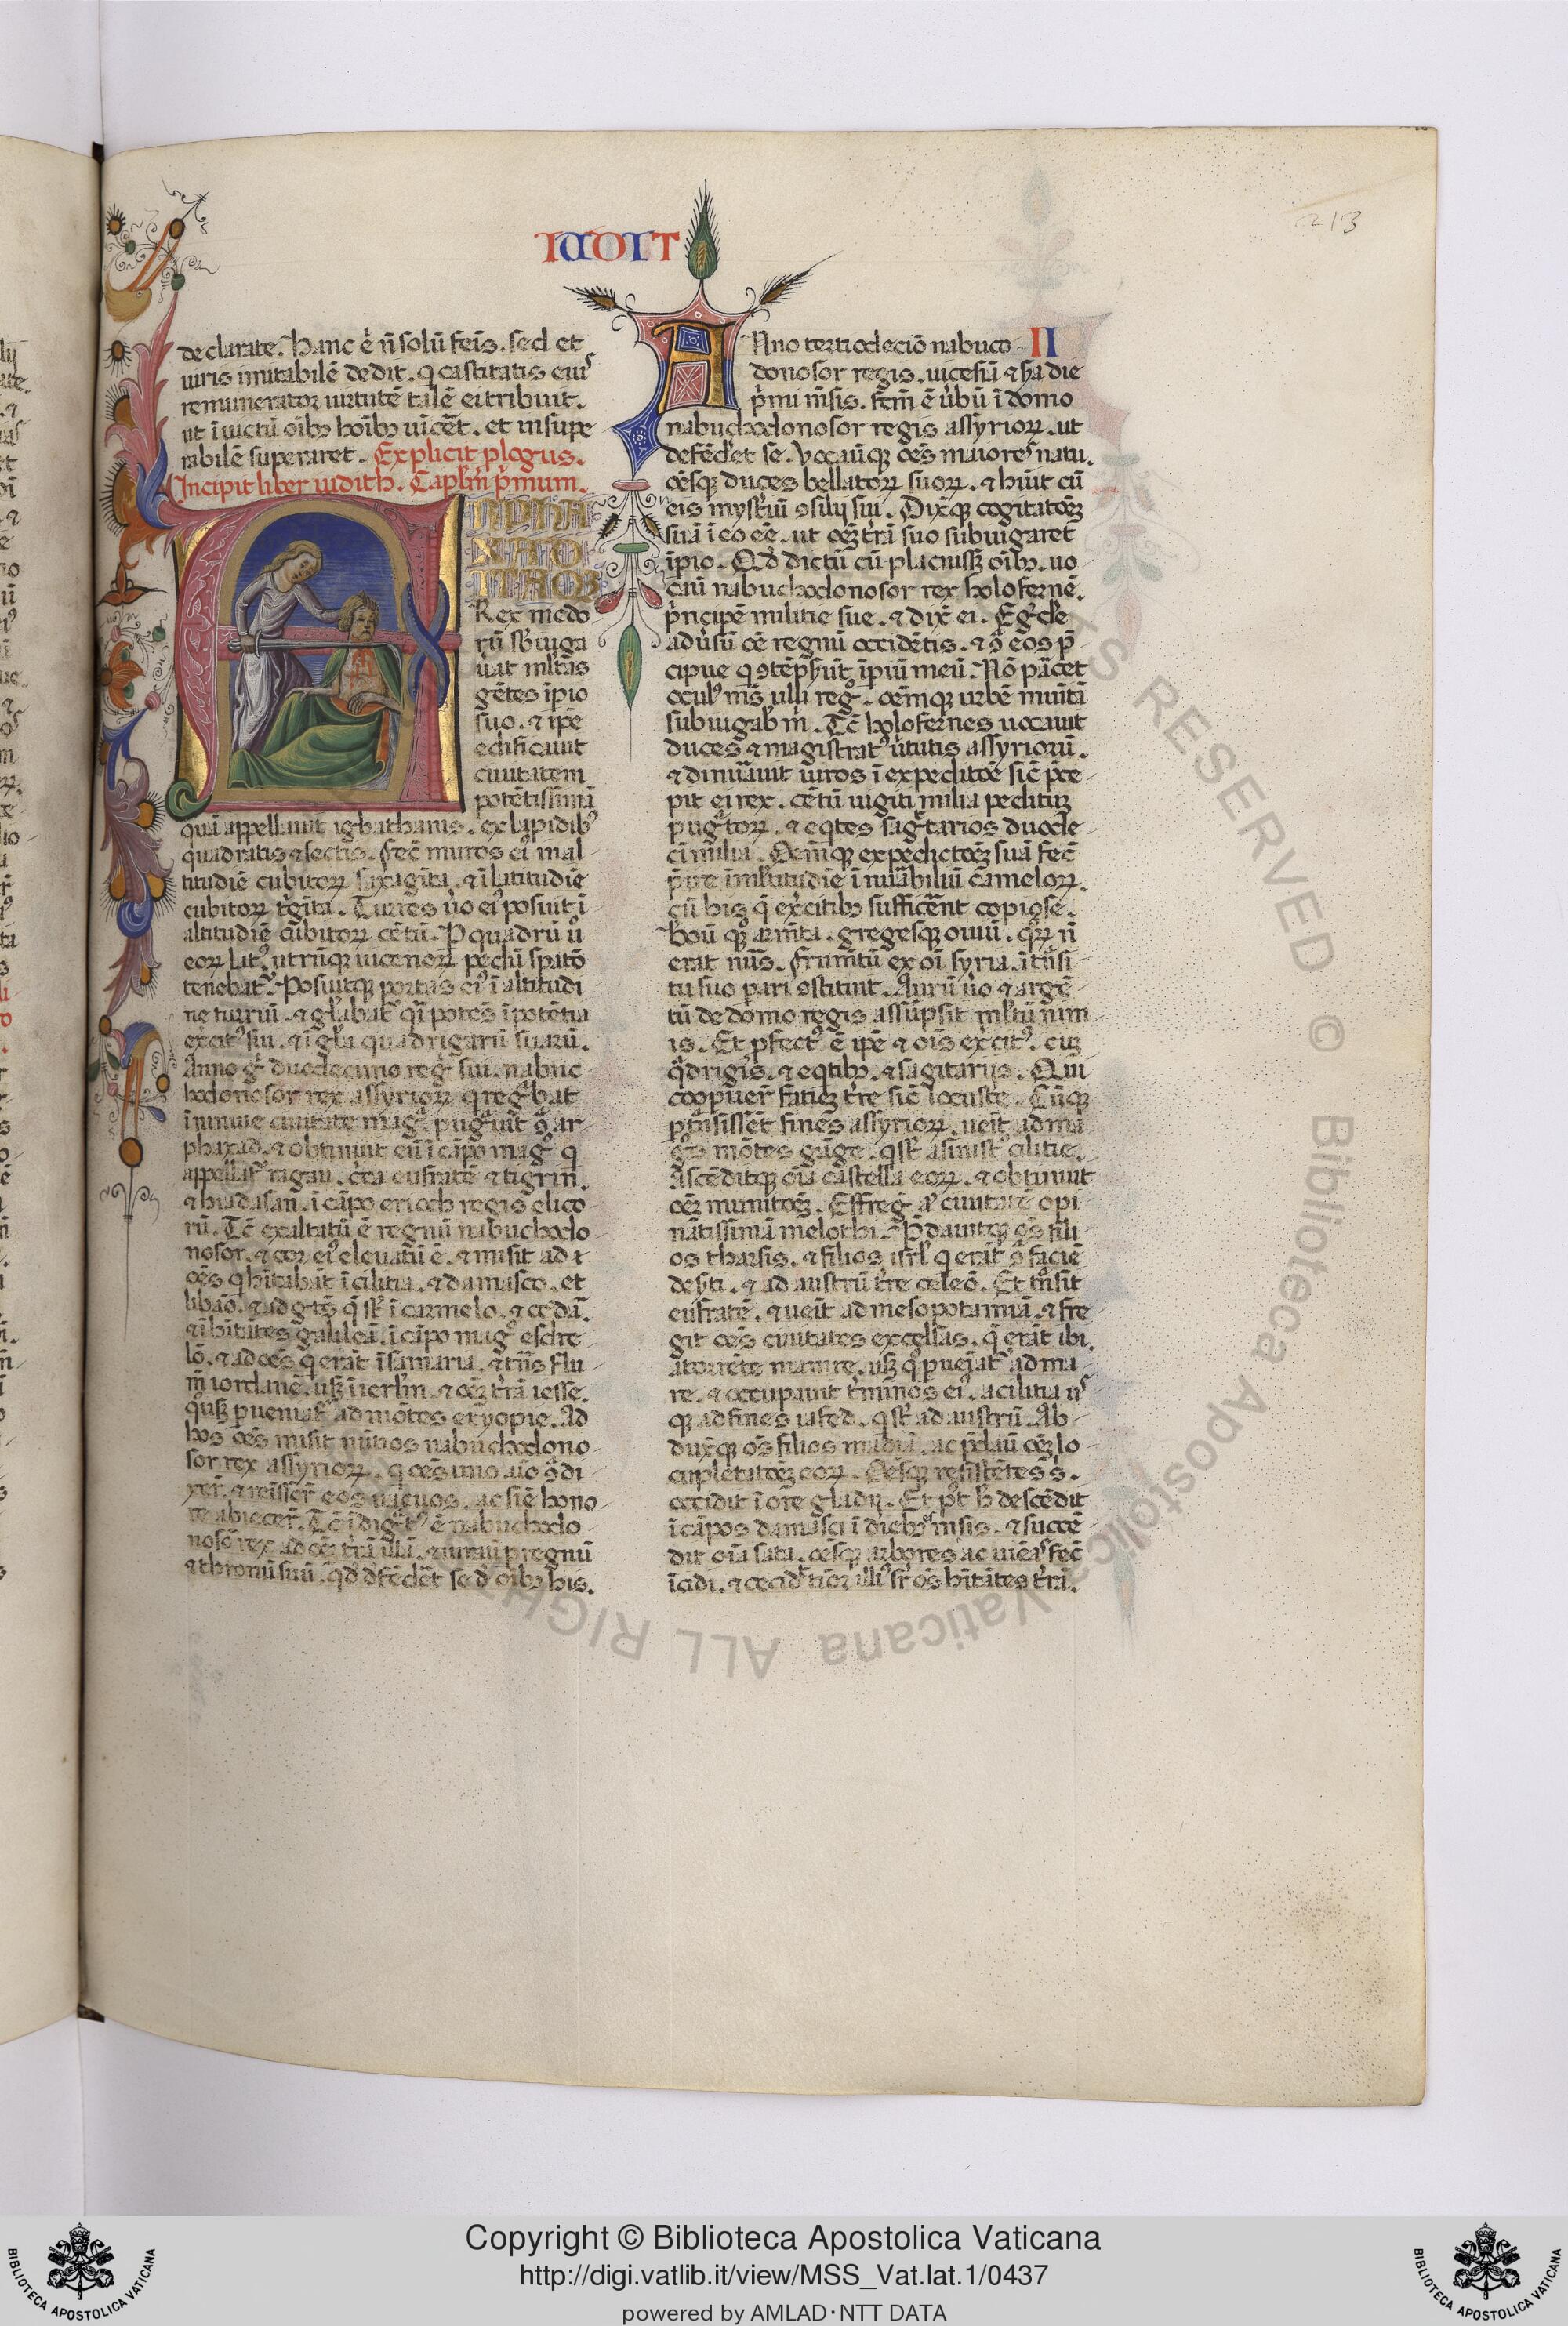 IUDIT
213
declarate. Hanc ē n̄ solū feīs. sed et
uiris imitabilē dedit. q castitatis eiuˢ
remunerator uirtutē talē ei tribuit.
ut īuictū oībꝫ hoībꝫ uīcēt. et insupe
rabilē superaret. Explicit plogus.
Incipit liber iudith. Caplm̄ p̄mum.
RPHA
XAD
ITAQꝫ
Rex medo
rū sb̄iuga
uāt ml̄tas
gētes īpio
suo. ⁊ ipē
edificauit
ciuitatem
potētissimā
quā appellauit igbathanis. ex lapidibꝰ
quadratis ⁊ sectis. fec̄ muros eiꝰ in al-
titudīe cubitoꝝ sexagīta. ⁊ ī latitudīe
cubitoꝝ tͥgīta. Turres ūo eiꝰ posuit ī
altitudīe cūbitoꝝ cētū. P quadrū ū
eoꝝ latꝰ utrūqꝫ uicenoꝝ pedū spatō
tenebatʳ. Posuitqꝫ portas eiꝰ ī altitudi-
ne turriū. ⁊ gl̄abatʳ qͣi potēs ī potētia
exc̄itꝰ sui. ⁊ ī gl̄a quadrigarū suarū.
Anno gͥ duodecimo regͥ sui. nabuc
hodonosor rex assyrioꝝ q regͣbat
ī niniue ciuitate magͣ. pugͣuīt ꝯͣ ar-
phaxad. ⁊ obtinuit eū ī cāpo magͦ q
appellatʳ ragau. c̄ca eufratē ⁊ tigrin.
⁊ hiadasan. ī cāpo erioch regis elico
rū. Tc̄ exaltatū ē regnū nabuchodo
nosor. ⁊ cor eiꝰ eleuatū ē. ⁊ misit ad
oēs q hītabāt ī cilitia. ⁊ damasco. et
libāo. ⁊ ad gētēs q̄ st̄ ī carmelo. ⁊ cedā.
⁊ īhītātes galileā. ī cāpo magͦ esdre-
lō. ⁊ ad oēs q erāt ī samaria. ⁊ tn̄s flu-
m̄ iordanē. usqꝫ ī ierl̄m. ⁊ oēꝫ tr̄ā iesse.
qͦusqꝫ pueniatʳ ad mōtes etyopie. Ad
hos oēs misit nūtios nabuchodono-
sor rex assyrioꝝ. q oēs uno aīo ꝯͣdi-
xer̄. ⁊ remiser̄ eos uacuos. ac siē hono-
re abiecer̄. Tc̄ īdigͣtꝰ ē nabuchodo-
nosor rex ad oēꝫ tr̄ā illā. ⁊ iurauit p regnū
⁊ thronū suū. qd̄ dēfēdēt se d̄ oībꝫ his.
ANno tertiodeciō nabuco- II
donosor regis. uicesīā ⁊ ha die
p̄mi mēsis. fcm̄ ē ūbū ī domo
nabuchodonosor regis assyrioꝝ. ut
defēdet se. Vocauitqꝫ oēs maiores natu.
oēsqꝫ duces bellatoꝝ suoꝝ. ⁊ hūit cū
eis mysteriū ꝯsilij sui. Dixitqꝫ cogitatōēꝫ
suā ī eo eē. ut oēꝫ tr̄ā suo subiugaret
īpio. Qd̄ dictū cū placuissꝫ oībꝫ. uo-
cauit nabuchodonosor rex holofernē.
p̄ncipē militie sue. ⁊ dix̄ ei. Egrēde
adūsū oē regnū occidētis. ⁊ ꝯͣ eos p̄
cipue q ꝯtēpser̄ūt īpiū meū. Nō pārcet
oculꝰ ms̄ ulli regͦ. oēmqꝫ urbē muītā
subiugabis m̄. Tc̄ holofernes uocauit
duces ⁊ magistratꝰ uirtutis assyriorū.
⁊ dinuauit uiros ī expeditōē sic p̄ce-
pit ei rex. cētū uigīti milia peditūꝫ
pugͣtoꝝ. ⁊ eqtes sagͥtarios duode-
ci milia. Oēmqꝫ expeditōēꝫ suā fec̄
p̄ire ī ml̄titudīe īnuābiliū camelorꝝ.
cū his q̄ exercitibꝫ sufficēnt copiose.
boū qͦꝫ armēta. gregesqꝫ ouiū. qͦꝝ n̄
erat nūs. Frumētū ex oī syria. ī trāsi-
tu suo parari ꝯstituit. Aurū ūo ⁊ argē-
tū de domo regis assūpsit ml̄tū nim-
is. Et pfectꝰ ē ipē ⁊ oīs exercitꝰ. cuꝫ
qͣdrigis. ⁊ eqtibꝫ. ⁊ sagitarijs. Qui
coopuer̄ fatieꝫ tr̄e sic locuste. Cūqꝫ
ptrāsissēt fines assyrioꝝ. ueīt ad ma-
gͦs mōtes gāge. q st̄ a sinistͦ cilitie.
Ascēditqꝫ oīa castella eoꝝ. ⁊ obtinuit
oēꝫ munitōēꝫ. Effregͥ āt ciuitatē opi-
natissimā melothi. P̄dauitqꝫ oēs fili-
os tharsis. ⁊ filios isrl̄ q erāt ꝯͣ faciē
desti. ⁊ ad austrū tr̄e celeō. Et trāsīt
eufratē. ⁊ ueīt ad mesopotamiā. ⁊ fre-
git oēs ciuitates excelsas. q̄ erāt ibi.
a torrēte mamre. usqꝫ qͦ pueīatʳ ad ma-
re. ⁊ occupauit tr̄minos eiꝰ. a cilitia usˢ
qꝫ ad fines iafed. q st̄ ad austrū. Ab-
duxitqꝫ oēs filios madiā. ac p̄dauit oēꝫ lo-
cupletatōēꝫ eoꝝ. Oēsqꝫ resistētes s̄.
occidit ī ore gladij. Et pͦt h̄ descēdit
ī cāpos damasci ī diebꝫ mēsis. ⁊ succē-
dit oīa sata. oēsqꝫ arbores ac uiēas fec̄
īcidi. ⁊ cecidͥt timor illiꝰ sr̄ oēs hītātes tr̄ā.
Copyright © Biblioteca Apostolica Vaticana ALL RIGHTS RESERVED
BIBLIOTECA APOSTOLICA VATICANA
Copyright © Biblioteca Apostolica Vaticana
http://digi.vatlib.it/view/MSS_Vat.lat.1/0437
powered by AMLAD·NTT DATA
BIBLIOTECA APOSTOLICA VATICANA